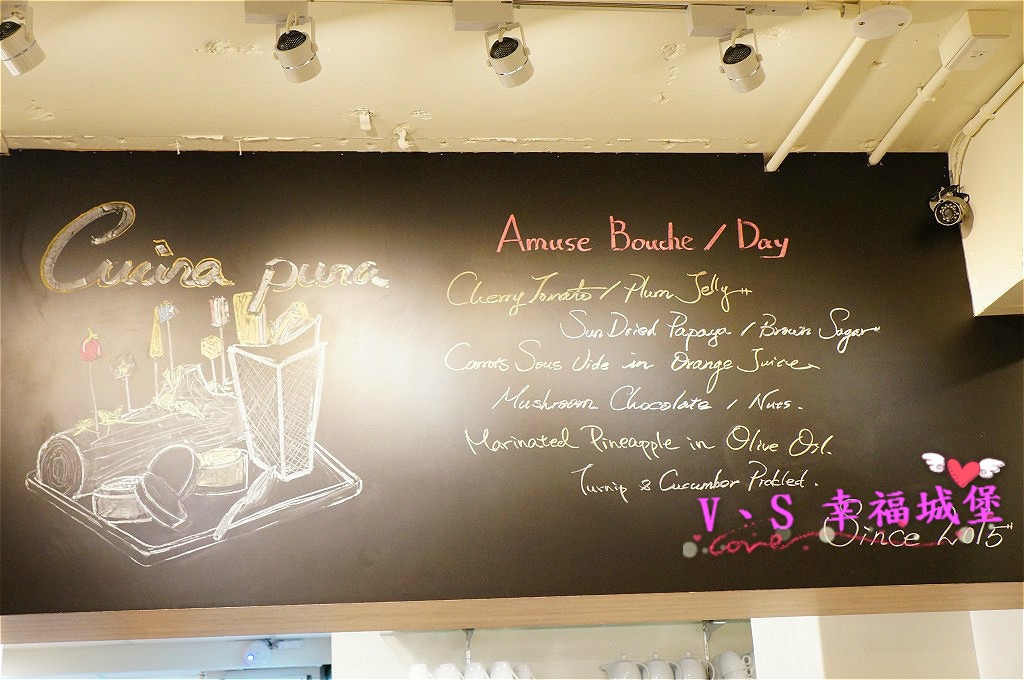 Cucina pura
Amuse Bouche / Day
Cherry Tomato / Plum Jelly
Sun Dried Papaya / Brown Sugar
Carrots Sous Vide in Orange Juice
Mushroom Chocolate / Nuts.
Marinated Pineapple in Olive Oil.
Turnip & Cucumber Pickled.
V、S 幸福城堡
Love
Since 2015